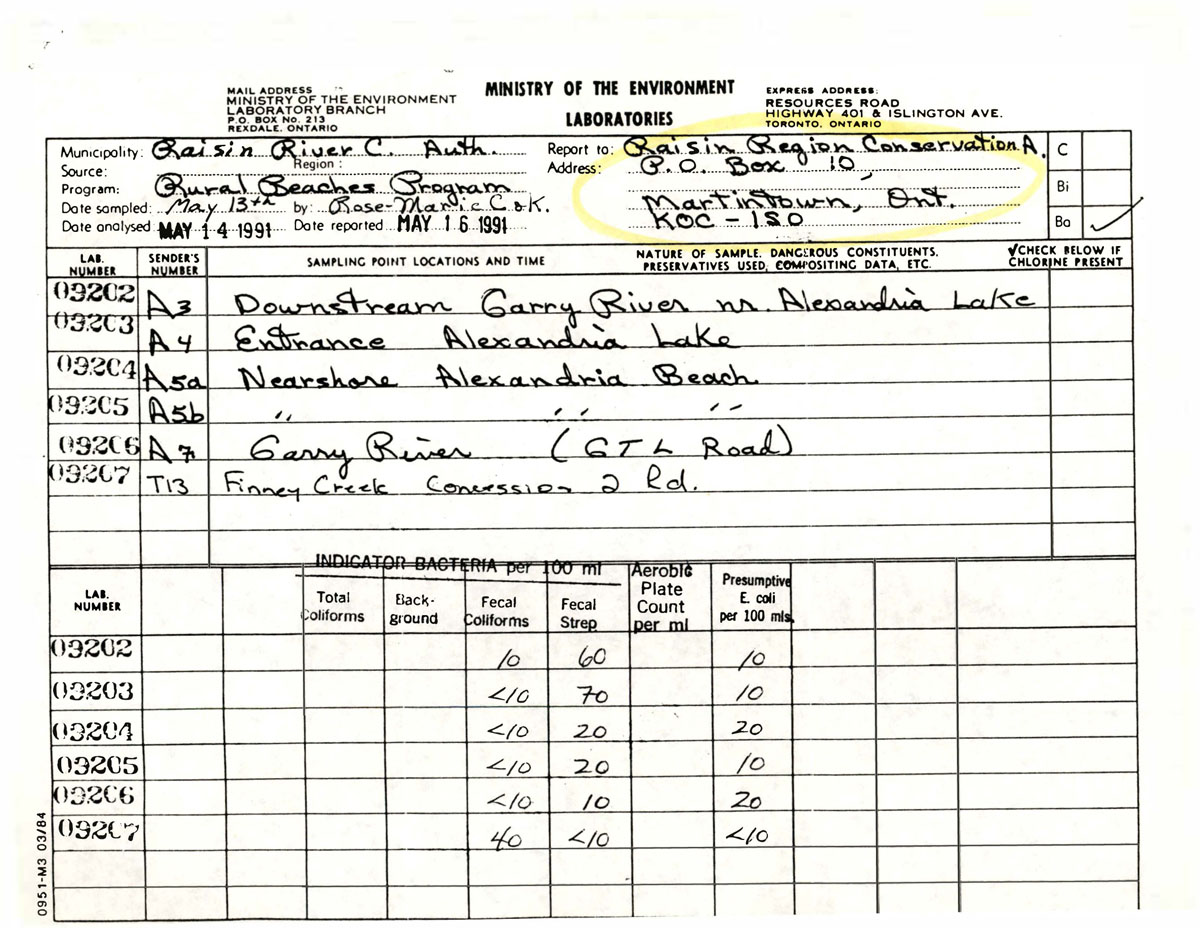 MINISTRY OF THE ENVIRONMENT
LABORATORIES
MAIL ADDRESS
MINISTRY OF THE ENVIRONMENT
LABORATORY BRANCH
P.O. BOX No. 213
REXDALE, ONTARIO
EXPRESS ADDRESS:
RESOURCES ROAD
HIGHWAY 401 & ISLINGTON AVE.
TORONTO, ONTARIO
Municipality: Raisin River C. Auth.
Source: Region:
Program: Rural Beaches Program
Date sampled: May 13th by: Rose-Marie C&K.
Date analysed MAY 14 1991 Date reported MAY 16 1991
Report to: Raisin Region Conservation A.
Address: P.O. Box 10,
Martintown, Ont.
KOC-1S0
C
Bi
Ba ✓
LAB. NUMBER SENDER'S NUMBER SAMPLING POINT LOCATIONS AND TIME NATURE OF SAMPLE, DANGEROUS CONSTITUENTS, PRESERVATIVES USED, COMPOSITING DATA, ETC. ✓CHECK BELOW IF CHLORINE PRESENT
09202 A3 Downstream Garry River nr. Alexandria Lake
09203 A4 Entrance Alexandria Lake
09204 A5a Nearshore Alexandria Beach
09205 A5b " " "
09206 A7 Garry River (GTL Road)
09207 T13 Finney Creek Concession 2 Rd.
INDICATOR BACTERIA per 100 ml
LAB. NUMBER Total Coliforms Back-ground Fecal Coliforms Fecal Strep Aerobic Plate Count per ml Presumptive E. coli per 100 mls
09202 10 60 10
09203 <10 70 10
09204 <10 20 20
09205 <10 20 10
09206 <10 10 20
09207 40 <10 <10
0951-M3 03/84